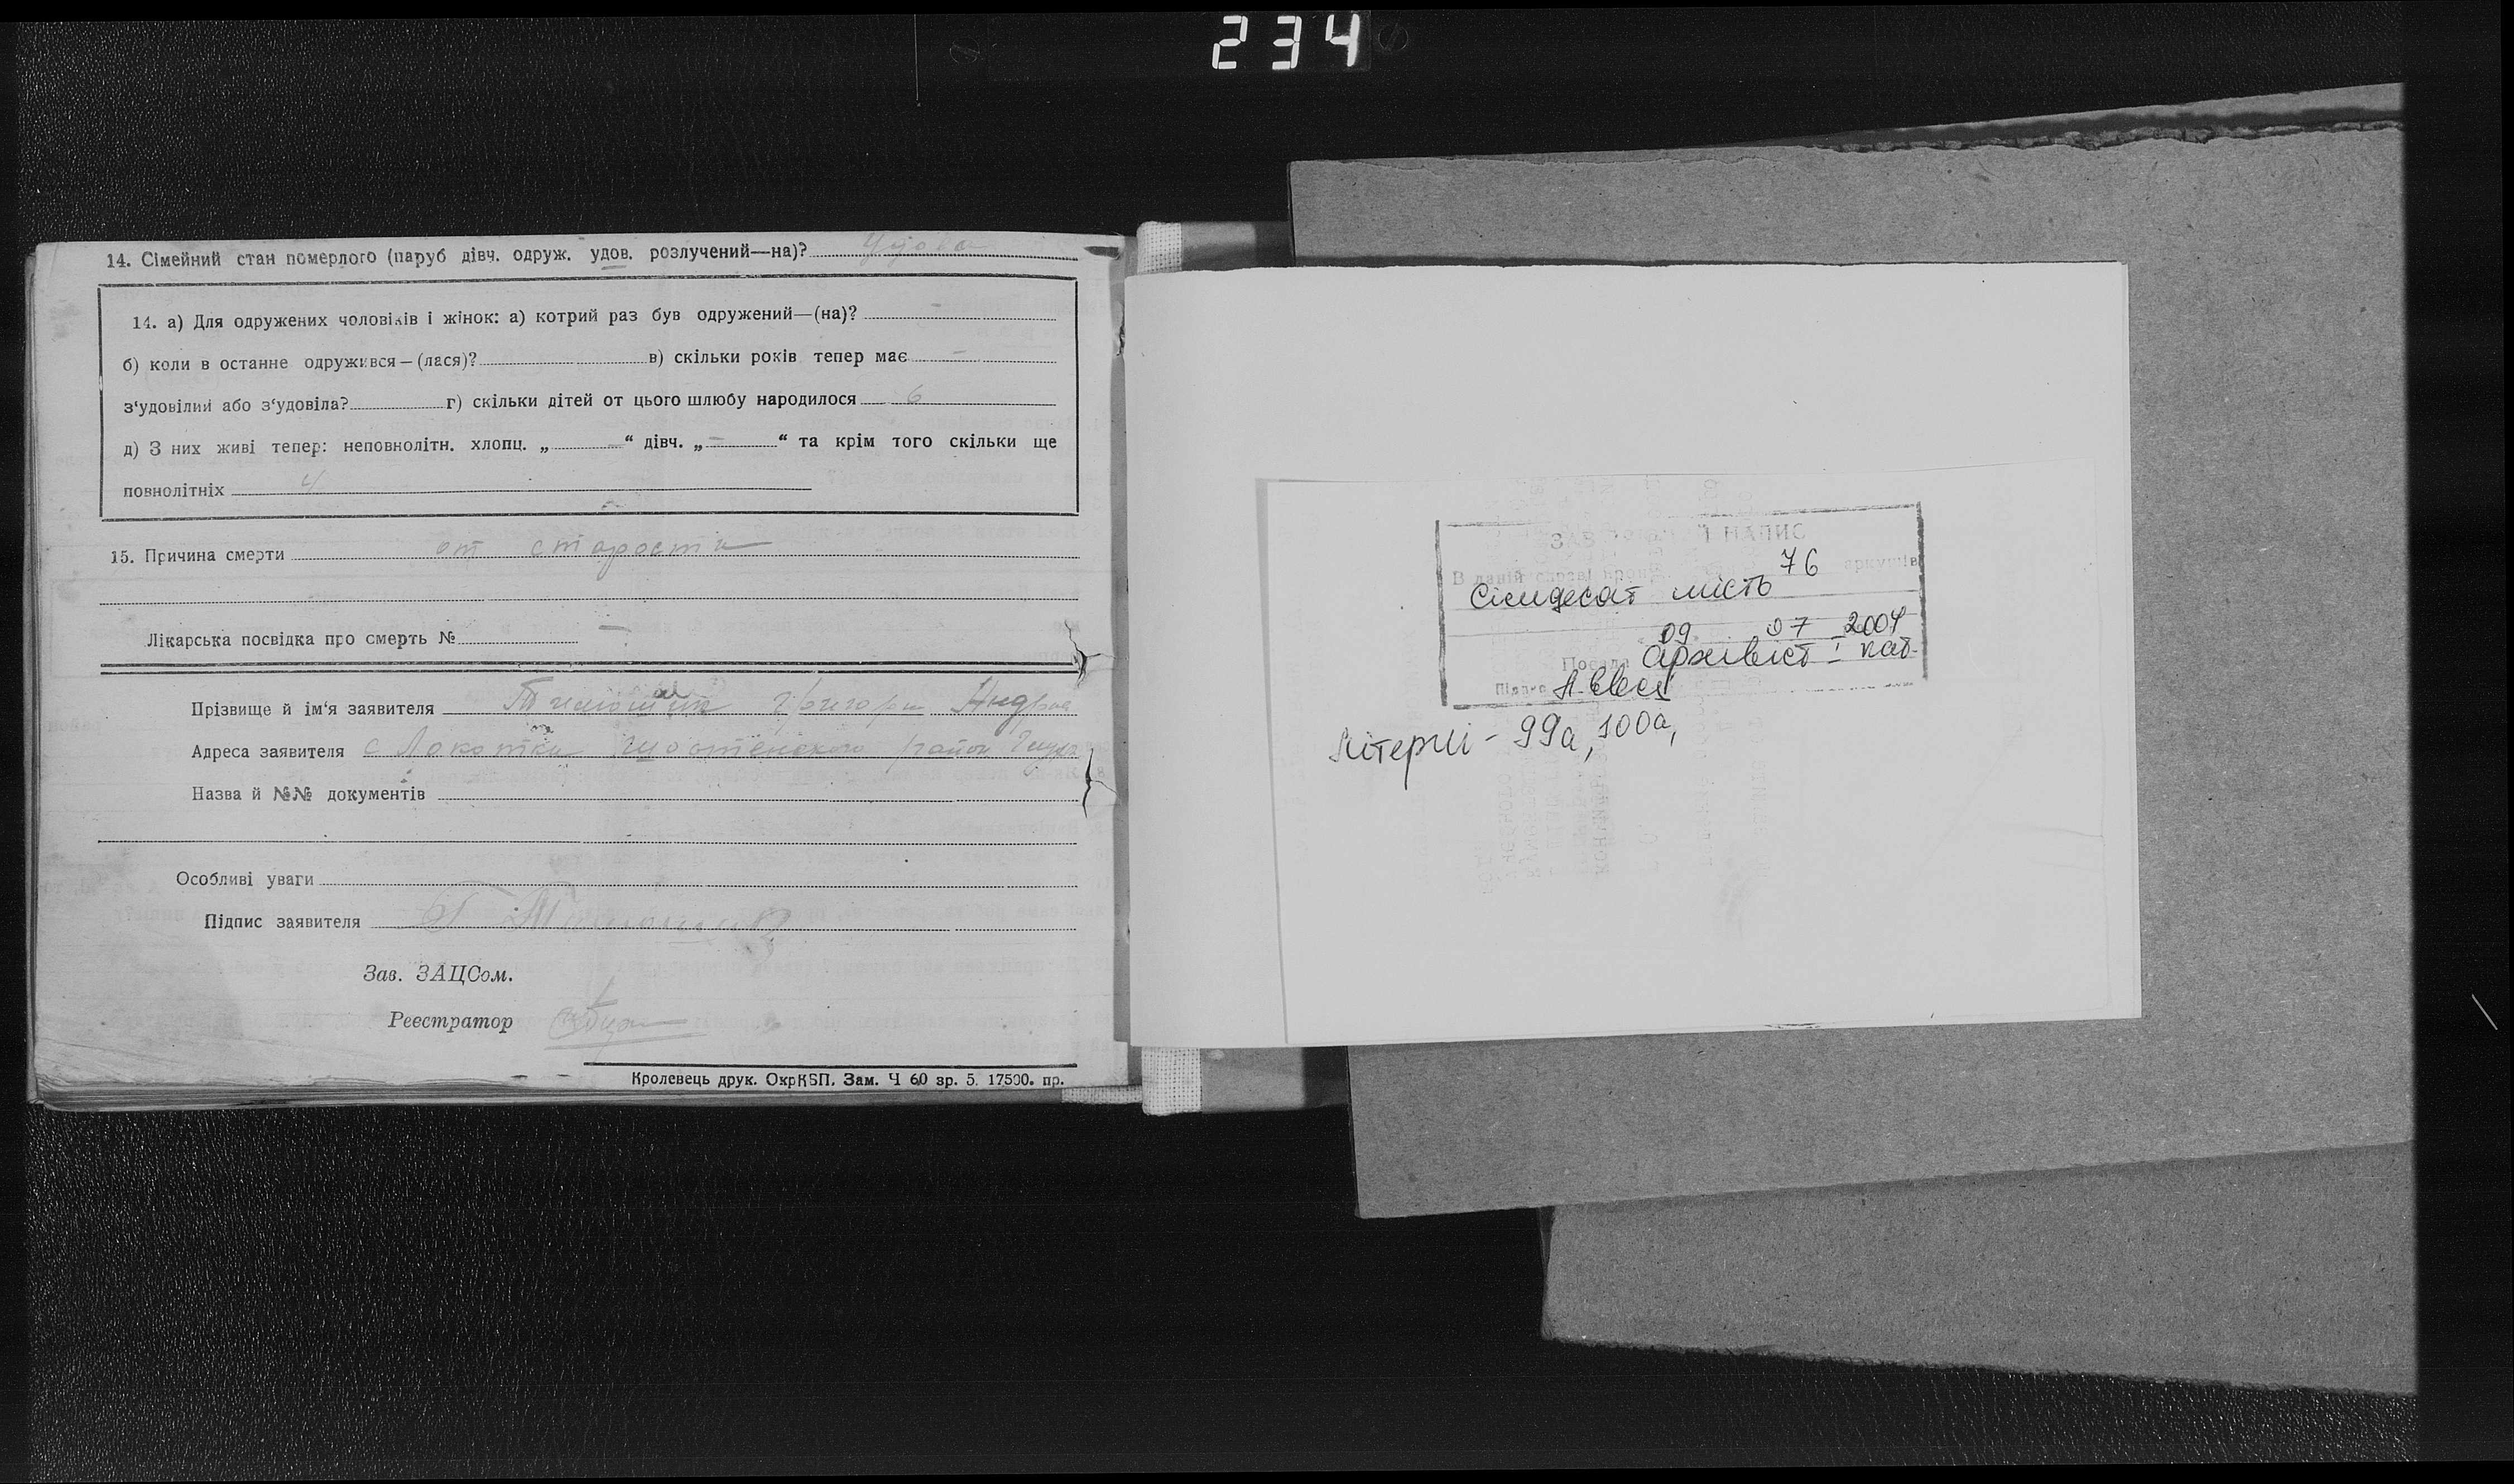 234
14. Сімейний стан померлого (паруб дівч. одруж. удов. розлучений—на)?
14. а) Для одружених чоловіків і жінок: а) котрий раз був одружений—(на)? -
б) коли в останне одружився—(лася)? в) скільки років тепер має -
з‘удовілий або з‘удовіла? г) скільки дітей от цього шлюбу народилося 6
д) З них живі тепер: неповнолітн. хлопц. „ - “ дівч. „ - “ та крім того скільки ще
повнолітніх 4
15. Причина смерти от старости
Лікарська посвідка про смерть № -
Прізвище й ім‘я заявителя Григори
Адреса заявителя с Локотки Шостенского район
Назва й №№ документів
Особливі уваги
Підпис заявителя
Зав. ЗАЦСом.
Реестратор
Кролевець друк. ОкрКВП. Зам. Ч 60 зр. 5. 17500. пр.
НАПИС
В даній справі 76 аркушів
Сімдесят шість
09 07 2004
Посада Архівіст І кат.
Підпис
Літерні - 99а, 100а,